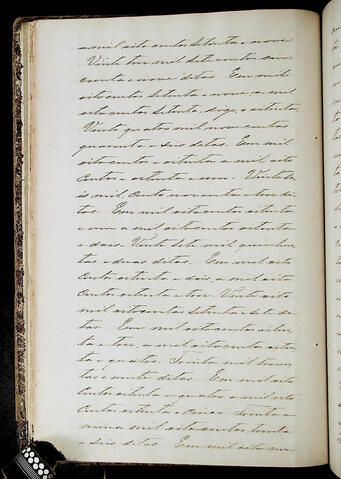 a mil oito centos setenta e nove
Vinte tres mil sete centos cin
coenta e nove ditas. Em mil
oitocentos setenta e nove a mil
oito centos setenta, digo, e oitenta
Vinte quatro mil nove centas
quarenta e seis ditas. Em mil
oito centos e oitenta a mil oito
centos e oitenta e um. Vinte
is mil, cento noventa e tres di
tas. Em mil oitocentos oitenta
e um a mil oitocentos oitenta
e dois. Vinte sete mil quinhen
tas e duas ditas. Em mil oito
centos oitenta e dois, a mil oito
centos oitenta e tres. Vinte oito
mil oitocentas setenta e sete di
tas. Em mil oitocentos oiten
ta e tres, a mil oito centos oiten
ta e quatro. Trinta mil trezen
tas e vinte ditas. Em mil oito
centos oitenta e quatro a mil oito
centos oitenta e cinco. Trinta e
uma mil oito centas trinta
e seis ditas. Em mil oito cen